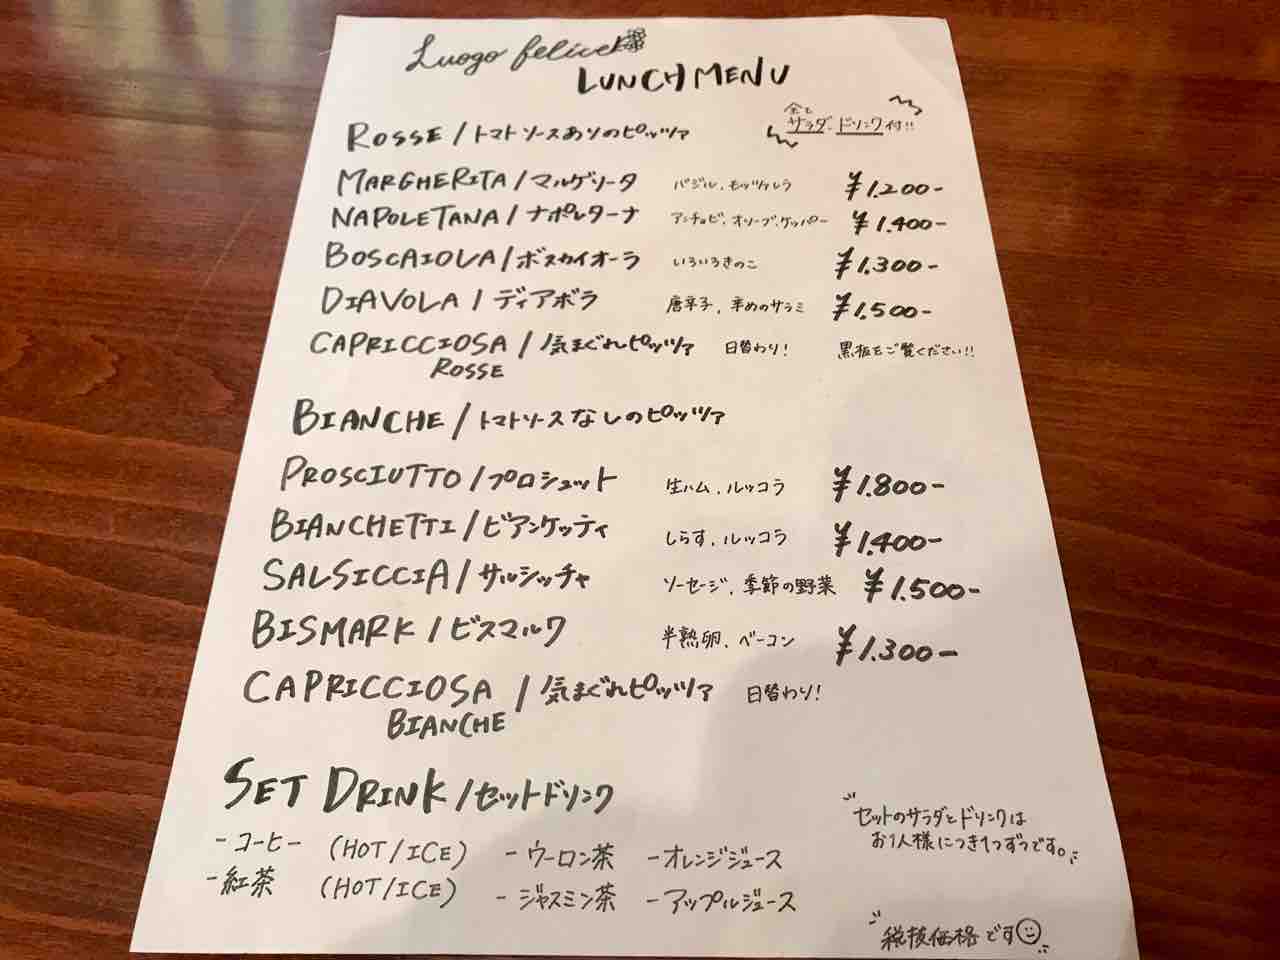 Luogo felice
LUNCH MENU
全て
サラダ、ドリンク付!!
ROSSE / トマトソースありのピッツァ
MARGHERITA / マルゲリータ バジル、モッツァレラ ¥1.200-
NAPOLETANA / ナポレターナ アンチョビ、オリーブ、ケッパー ¥1.400-
BOSCAIOLA / ボスカイオーラ いろいろきのこ ¥1.300-
DIAVOLA / ディアボラ 唐辛子、辛めのサラミ ¥1.500-
CAPRICCIOSA / 気まぐれピッツァ 日替わり! 黒板をご覧ください!!
ROSSE
BIANCHE / トマトソースなしのピッツァ
PROSCIUTTO / プロシュット 生ハム、ルッコラ ¥1.800-
BIANCHETTI / ビアンケッティ しらす、ルッコラ ¥1.400-
SALSICCIA / サルシッチャ ソーセージ、季節の野菜 ¥1.500-
BISMARK / ビスマルク 半熟卵、ベーコン ¥1.300-
CAPRICCIOSA / 気まぐれピッツァ 日替わり!
BIANCHE
SET DRINK / セットドリンク
- コーヒー (HOT/ICE) - ウーロン茶 - オレンジジュース
- 紅茶 (HOT/ICE) - ジャスミン茶 - アップルジュース
セットのサラダとドリンクは
お1人様につき1つずつです。
税抜価格です